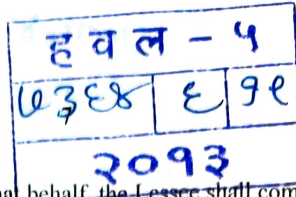 ह व ल - ५
७३६४ ६ १९
२०१३
behalf, the Lessee shall com